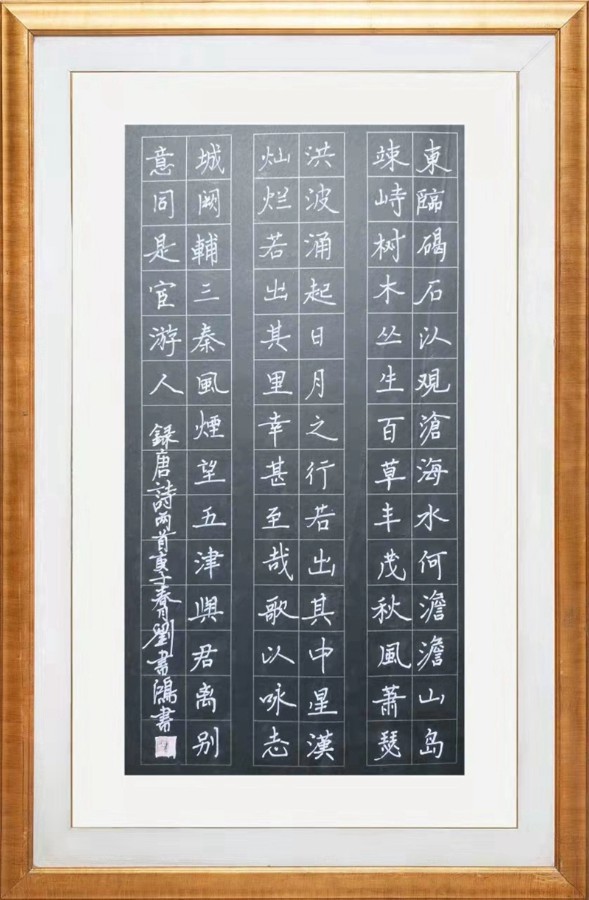 東臨碣石以观滄海水何澹澹山岛
竦峙树木丛生百草丰茂秋風蕭瑟
洪波涌起日月之行若出其中星漢
灿烂若出其里幸甚至哉歌以咏志
城闕輔三秦風煙望五津與君离别
意同是宦游人
録唐詩两首庚子春月劉書鴻書